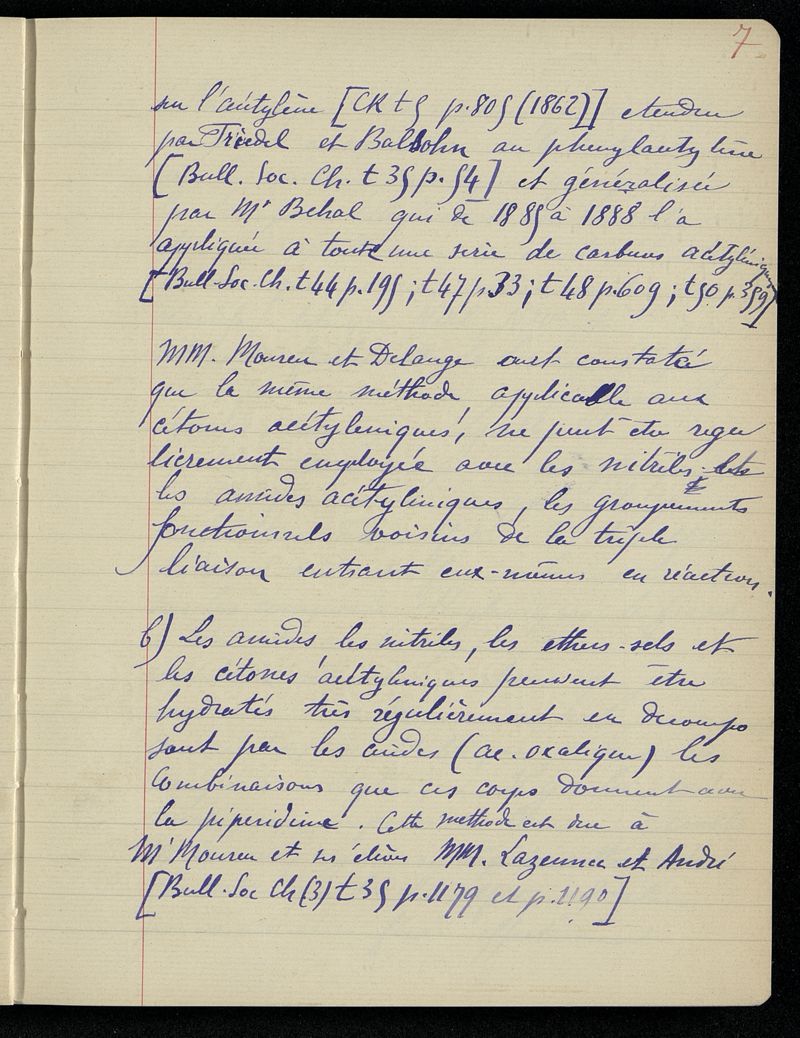 7
sur l'acétylène [CR t 5 p. 805 (1862)] etendue
par Friedel et Balsohn au phenylacetylène
[Bull. Soc. Ch. t 35 p. 54] et généralisée
par Mr Behal qui de 1885 à 1888 l'a
appliquée à toute une serie de carbures acétyléniques
[Bull. Soc. Ch. t 44 p. 195 ; t 47 p. 33 ; t 48 p. 609 ; t 50 p. 359]
MM. Moureu et Delange ont constaté
que la même méthode applicable aux
cétones acétyleniques, ne peut etre regu
lièrement employée avec les nitriles et
les amides acétyleniques, les groupements
fonctionnels voisins de la triple
liaison entrant eux-mêmes en réaction.
b) Les amides les nitriles, les ethers-sels et
les cétones acétyleniques peuvent être
hydratés très régulièrement en decompo
sant par les acides (ac. oxalique) les
combinaisons que ces corps donnent avec
la piperidine. Cette methode est due à
Mr Moureu et ses élèves MM. Lazennec et André
[Bull. Soc Ch (3) t 35 p. 1179 et p. 1190]